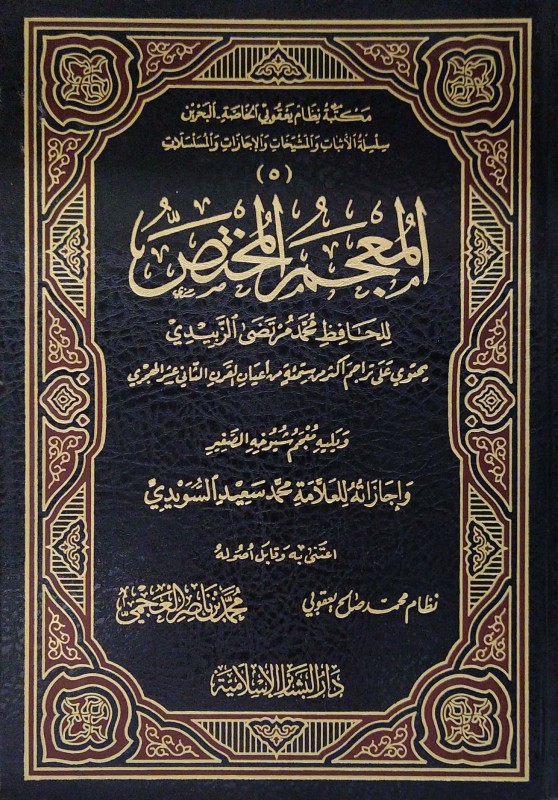 مَكتَبَةُ نِظَام يَعقُوبي الخَاصَّة - البَحرَين
سِلسِلَةُ الأَثبَاتِ وَالمَشيَخَاتِ وَالإجَازَاتِ وَالمُسَلسَلَات
(٥)
المُعجَمُ المُختَصُّ
لِلحَافِظِ مُحَمَّد مُرتَضَى الزَّبِيدِيّ
يحتوي على تراجم أكثر من ستمئة من أعيان القرن الثاني عشر الهجري
وَيَليهِ مُعجَمُ شُيُوخِهِ الصَّغِير
وَإجَازَاتُهُ لِلعَلَّامَةِ مُحَمَّد سَعِيد السُّوَيدِيّ
اعتَنَى بِه وَقَابَلَ أصُولَهُ
نظام محمد صالح يعقوبي محمد بن ناصر العجمي
دَارُ البَشَائِرِ الإِسْلَامِيَّة